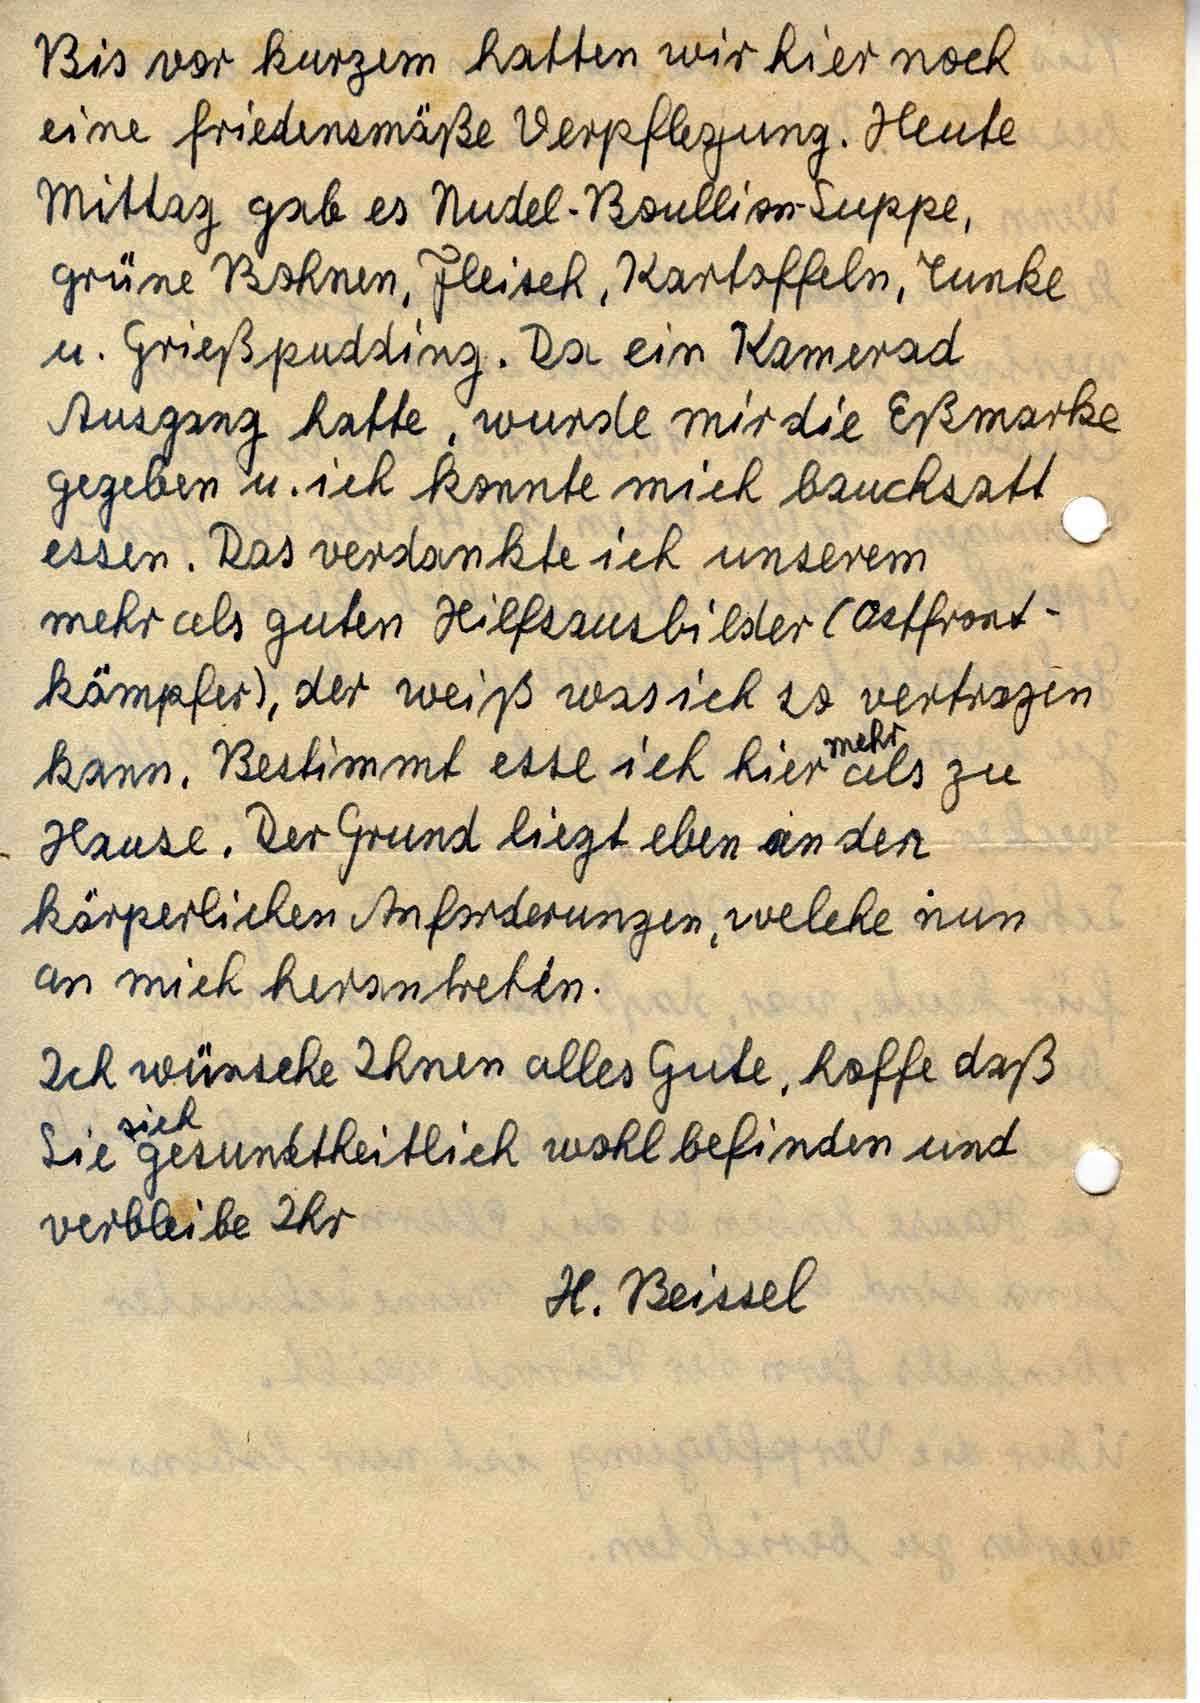 Bis vor kurzem hatten wir hier noch
eine friedensmäße Verpflegung. Heute
Mittag gab es Nudel-Boullion-Suppe,
grüne Bohnen, Fleisch, Kartoffeln, Tunke
u. Grießpudding. Da ein Kamerad
Ausgang hatte, wurde mir die Eßmarke
gegeben u. ich konnte mich bauchsatt
essen. Das verdankte ich unserem
mehr als guten Hilfsausbilder (Ostfront-
kämpfer), der weiß was ich so vertragen
kann. Bestimmt esse ich hier mehr als zu
Hause. Der Grund liegt eben an den
körperlichen Anforderungen, welche nun
an mich herantreten.
Ich wünsche Ihnen alles Gute, hoffe daß
Sie sich gesundtheitlich wohl befinden und
verbleibe Ihr
H. Beissel